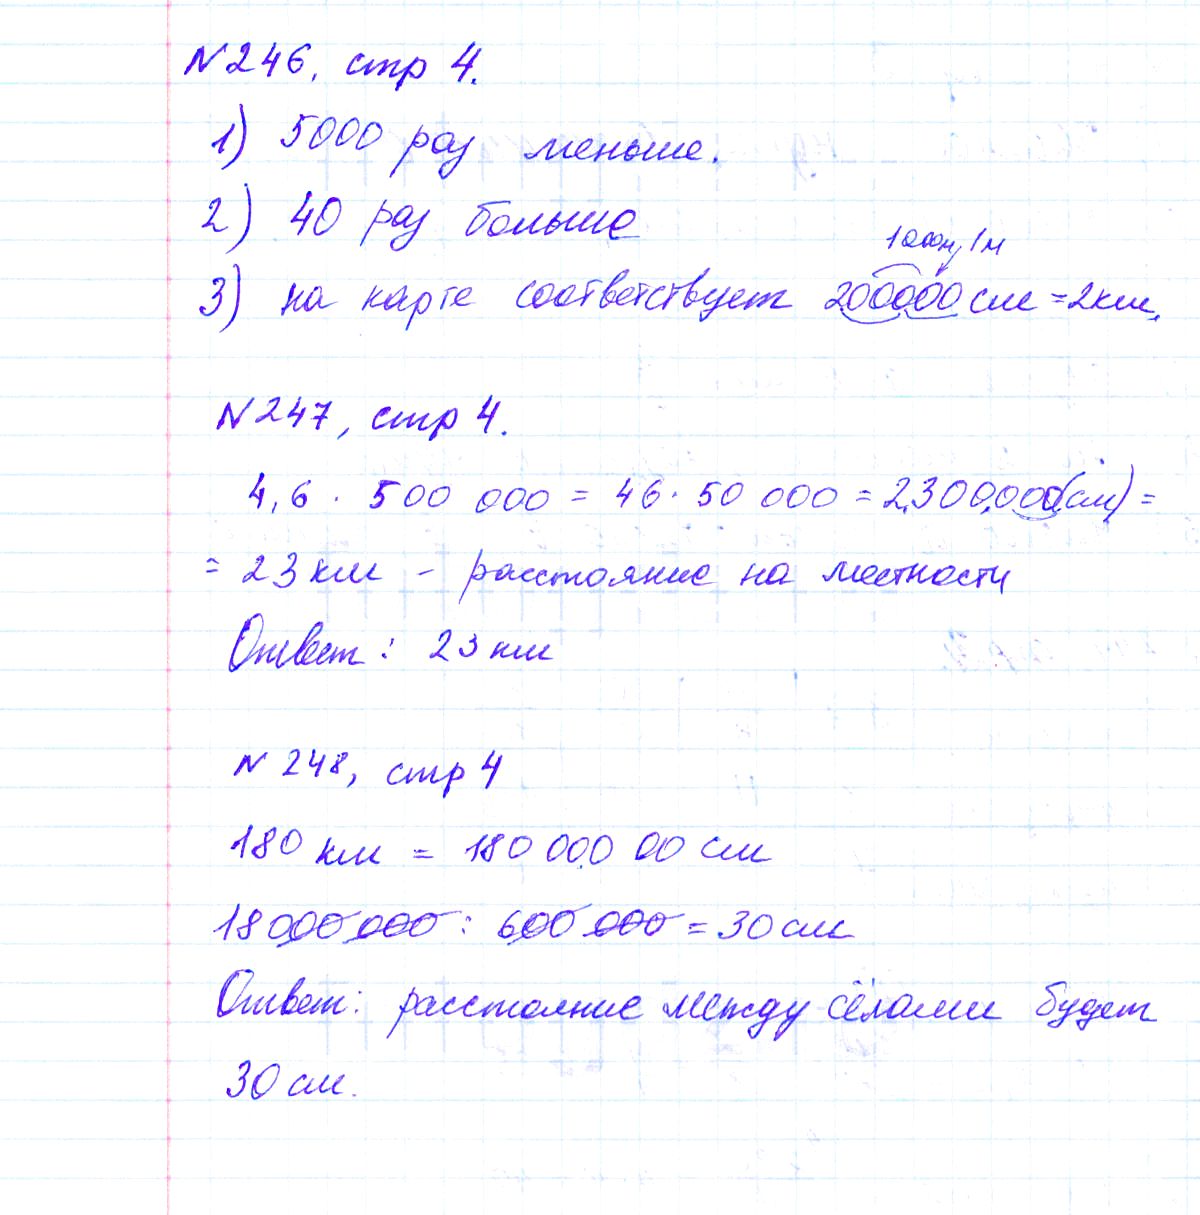 N246, стр 4.
1) 5000 раз меньше.
2) 40 раз больше
1000м, 1м
3) на карте соответствует 200000 см = 2км.
N247, стр 4.
4,6 · 500 000 = 46 · 50 000 = 2300000(см) =
= 23 км - расстояние на местности
Ответ: 23 км
N 248, стр 4
180 км = 180 000 00 см
18000 000 : 600 000 = 30 см
Ответ: расстояние между сёлами будет
30 см.